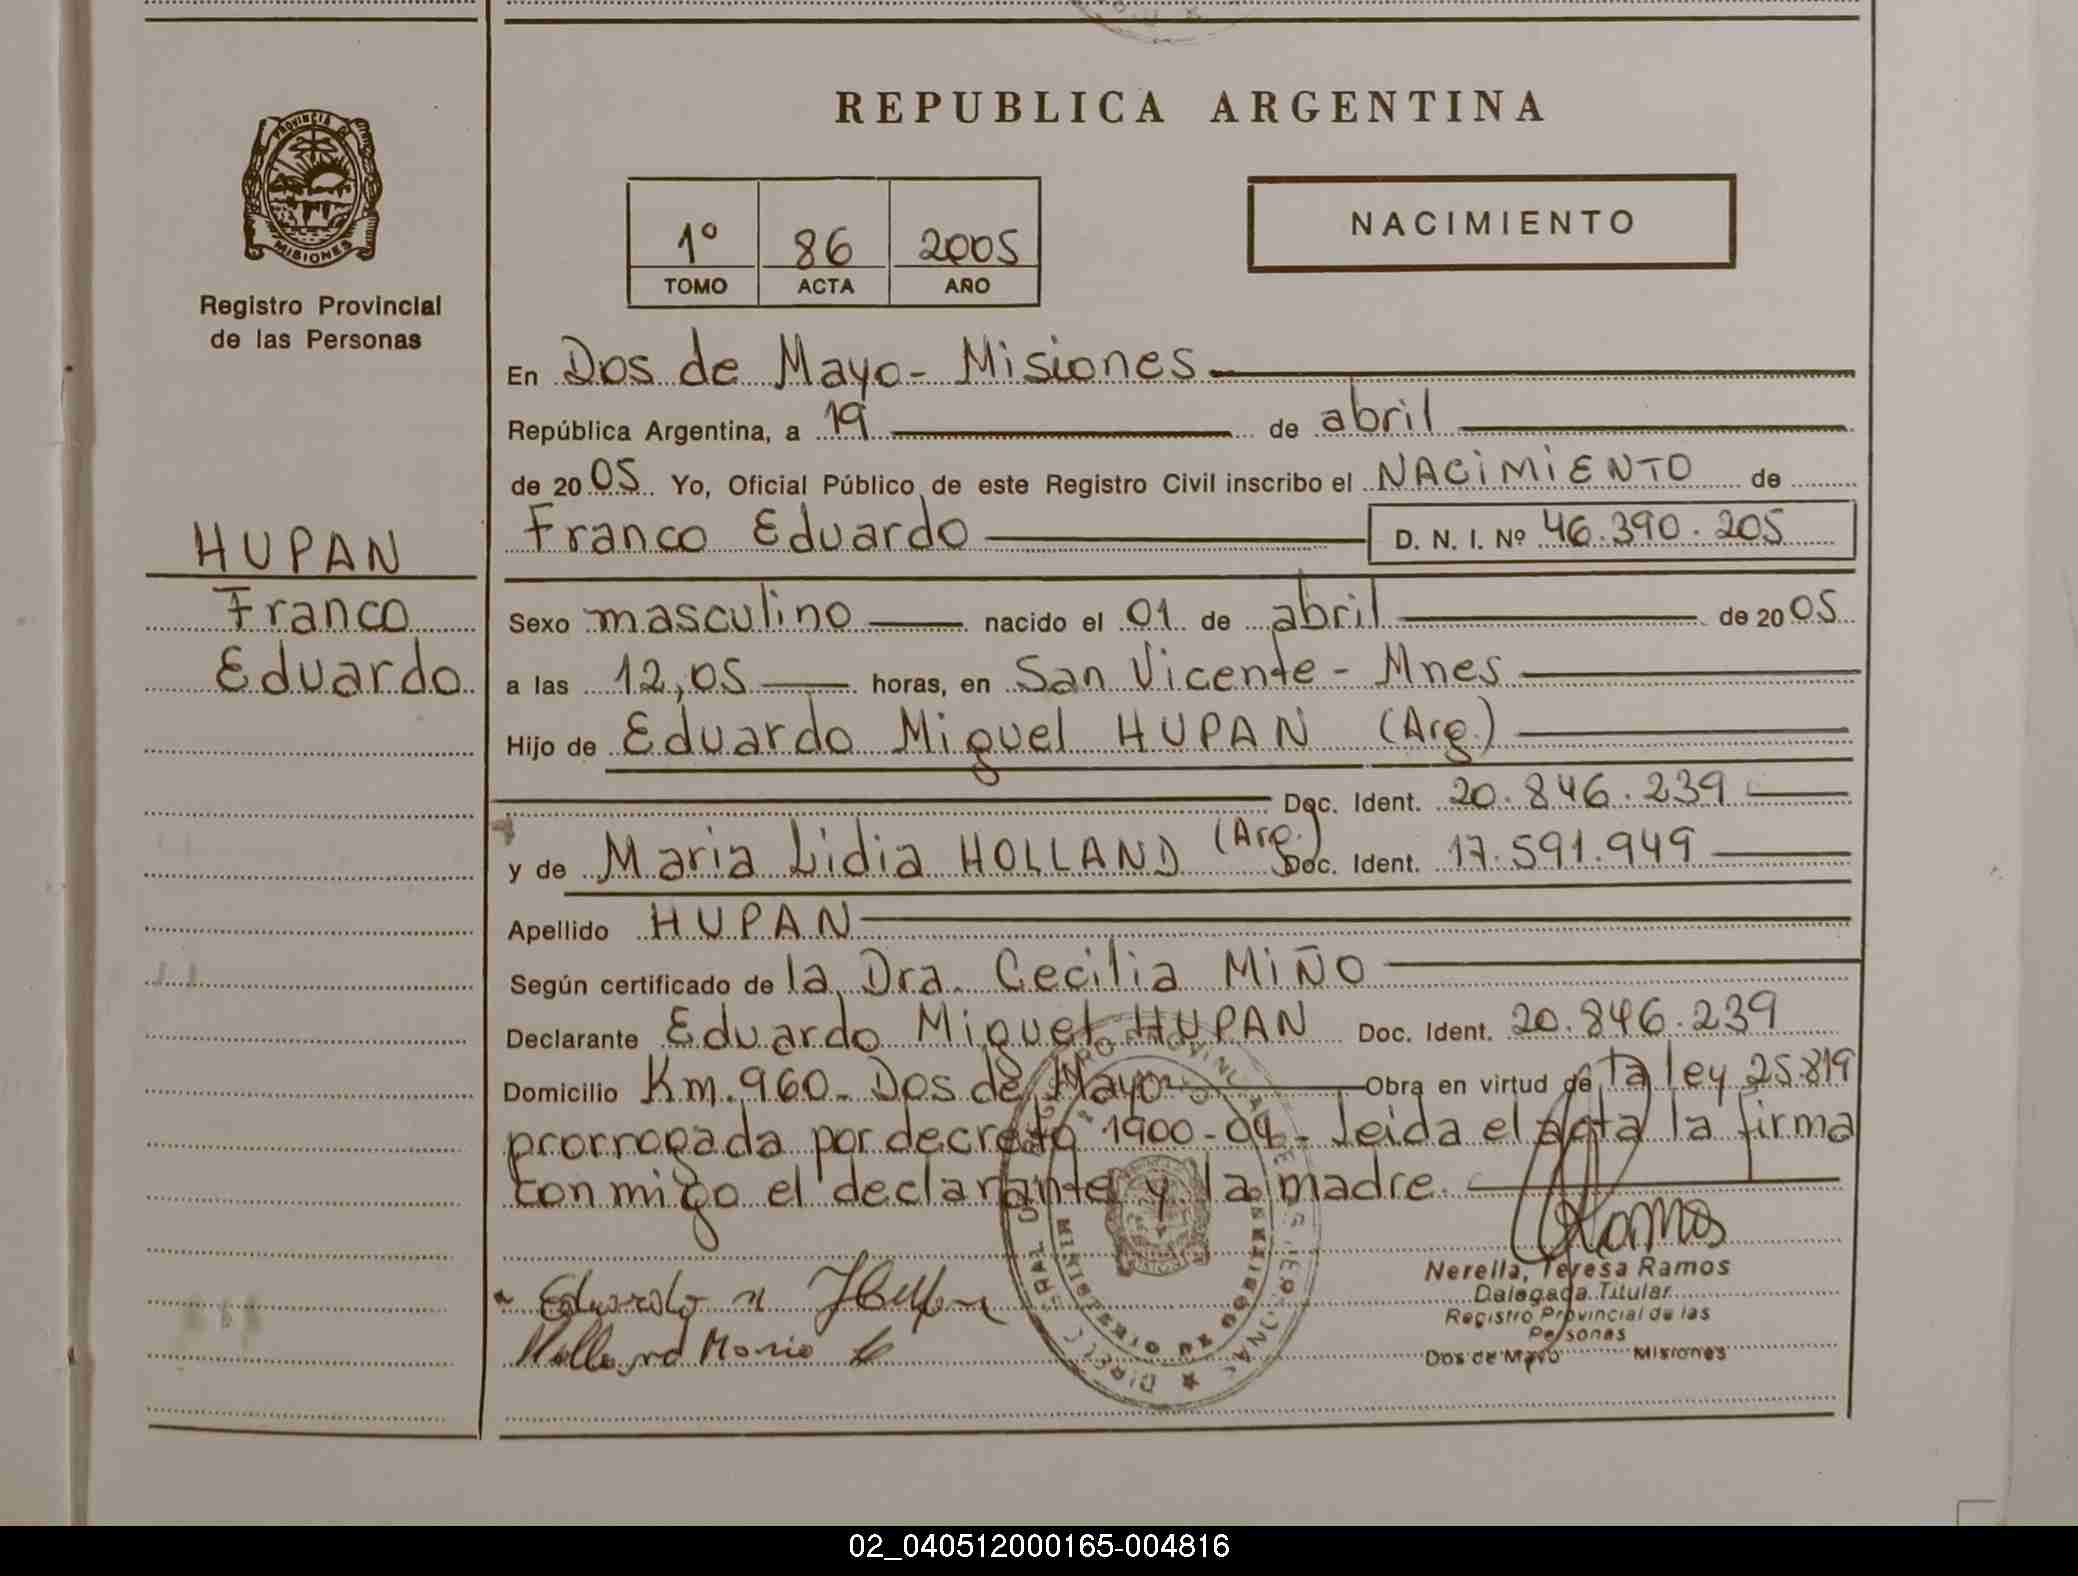 REPUBLICA ARGENTINA
PROVINCIA DE
MISIONES
Registro Provincial
de las Personas
1º 86 2005
TOMO ACTA AÑO
NACIMIENTO
En Dos de Mayo - Misiones
República Argentina, a 19 de abril
de 2005 Yo, Oficial Público de este Registro Civil inscribo el NACIMIENTO de
HUPAN
Franco
Eduardo
Franco Eduardo D. N. I. Nº 46.390.205
Sexo masculino nacido el 01 de abril de 2005
a las 12,05 horas, en San Vicente - Mnes
Hijo de Eduardo Miguel HUPAN (Arg.)
Doc. Ident. 20.846.239
y de Maria Lidia HOLLAND (Arg.) Doc. Ident. 17.591.949
Apellido HUPAN
Según certificado de la Dra. Cecilia MIÑO
Declarante Eduardo Miguel HUPAN Doc. Ident. 20.846.239
Domicilio Km. 960 - Dos de Mayo Obra en virtud de la ley 25819
prorrogada por decreto 1900-04 - leida el acta la firma
conmigo el declarante y la madre.
Ramos
Eduardo M Hupan
Holland Maria L
Nerella, Teresa Ramos
Delegada Titular
Registro Provincial de las
Personas
Dos de Mayo Misiones
02_040512000165-004816